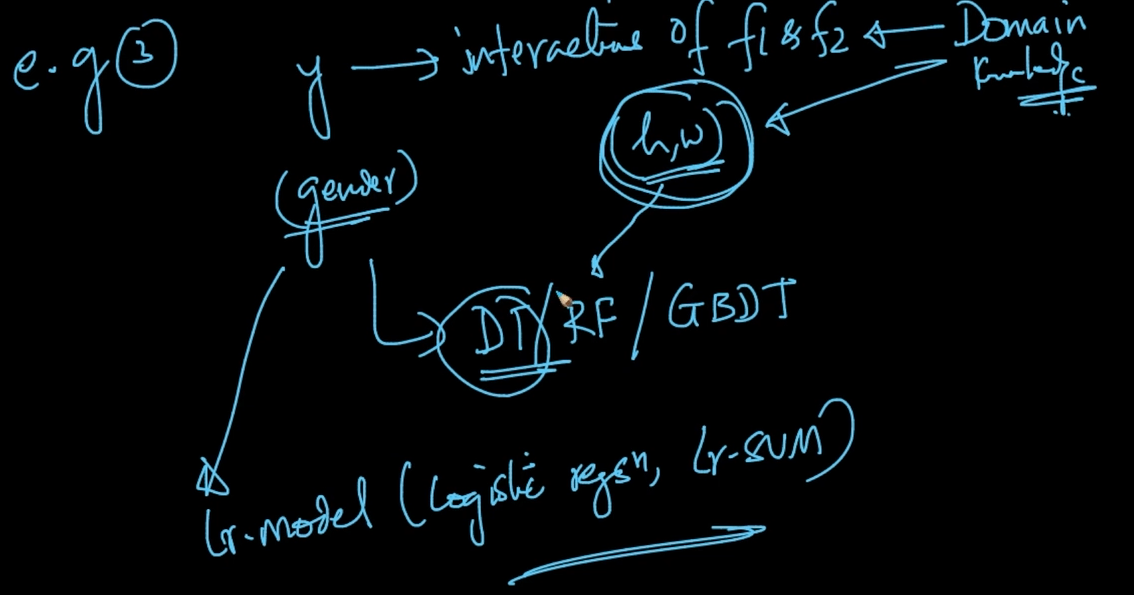 e.g ③ y → interactions of f1 & f2 ← Domain
Knowledge
(h,w)
(gender)
DT/RF/GBDT
Lr-model (Logistic regsn, Lr-SVM)